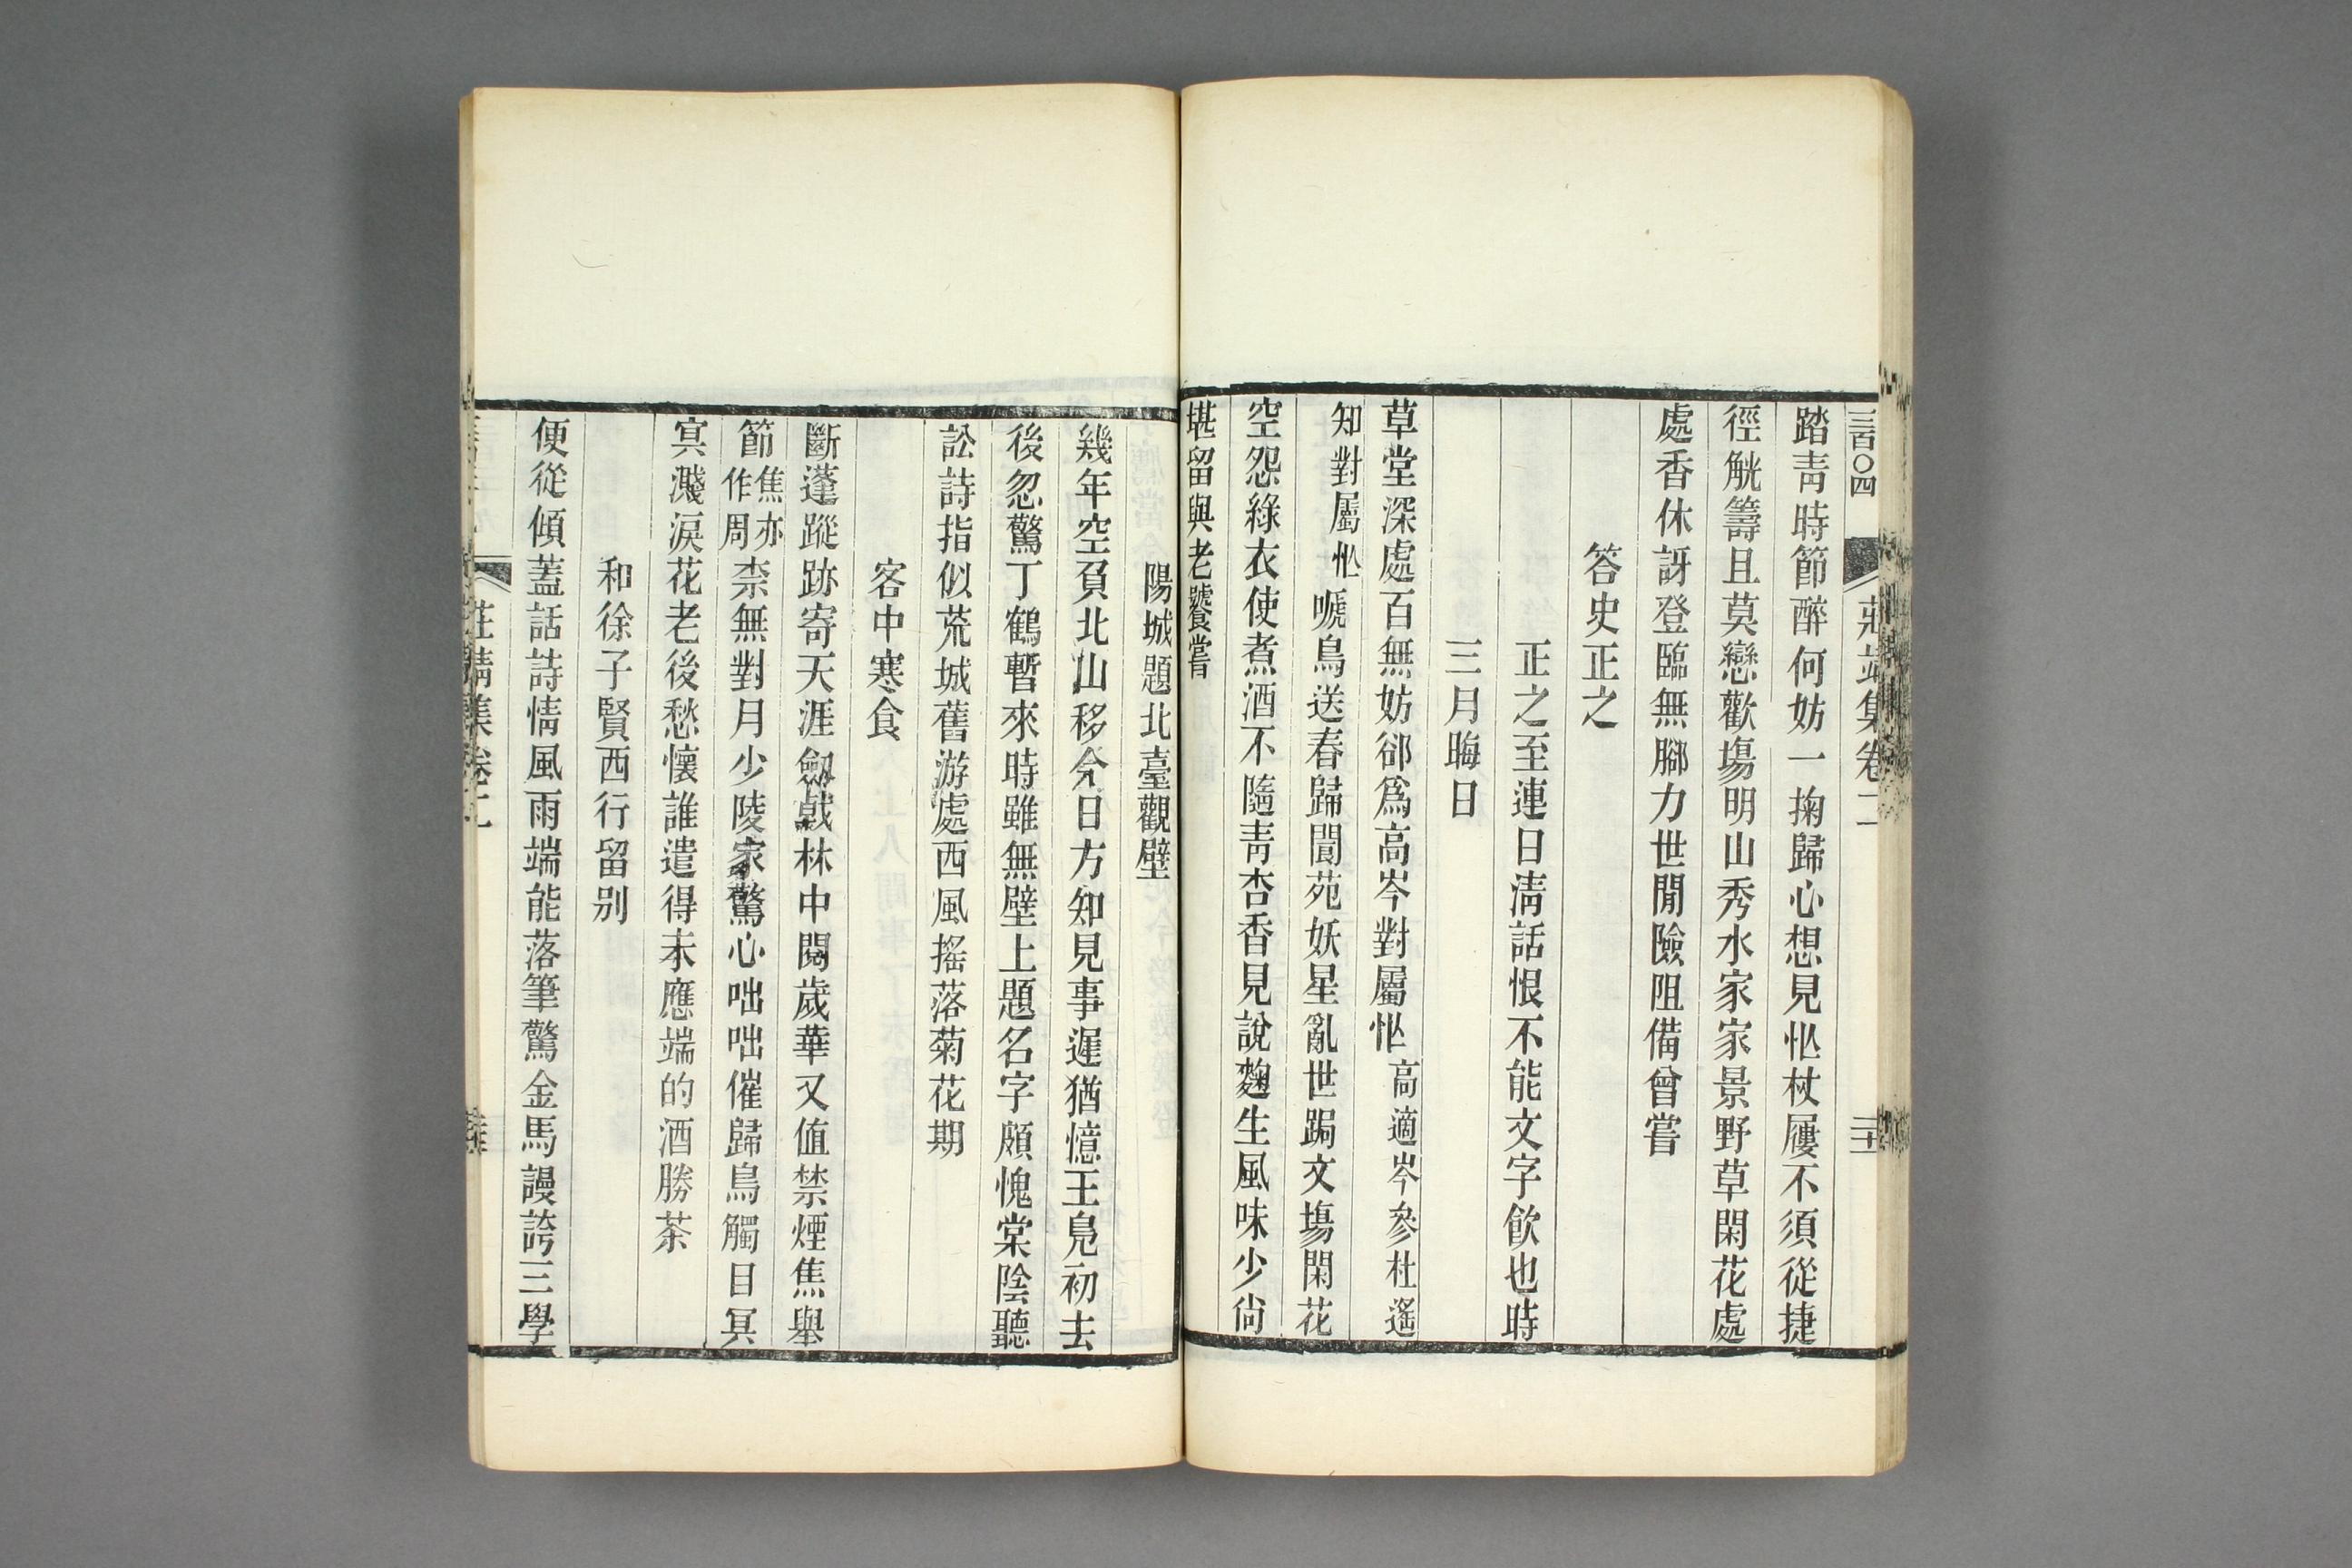 三百〇四
莊靖集卷二
踏靑時節醉何妨一掬歸心想見忙杖屨不須從捷
徑觥籌且莫戀歡塲明山秀水家家景野草閑花處
處香休訝登臨無腳力世閒險阻備曾嘗
答史正之
正之至連日淸話恨不能文字飮也時
三月晦日
草堂深處百無妨郤爲高岑對屬忙高適岑參杜遙
知對屬忙嗁鳥送春歸閬苑妖星亂世跼文塲閑花
空怨綠衣使煮酒不隨靑杏香見說麴生風味少尙
堪留與老饕嘗
陽城題北臺觀壁
幾年空負北山移今日方知見事遲猶憶王鳧初去
後忽驚丁鶴暫來時雖無壁上題名字頗愧棠陰聽
訟詩指似荒城舊游處西風搖落菊花期
客中寒食
斷蓬蹤跡寄天涯劔戟林中閱歲華又値禁煙焦舉
節焦亦作周柰無對月少陵家驚心咄咄催歸鳥觸目冥
冥濺淚花老後愁懷誰遣得未應端的酒勝茶
和徐子賢西行留别
便從傾蓋話詩情風雨端能落筆驚金馬謾誇三學
莊靖集卷二